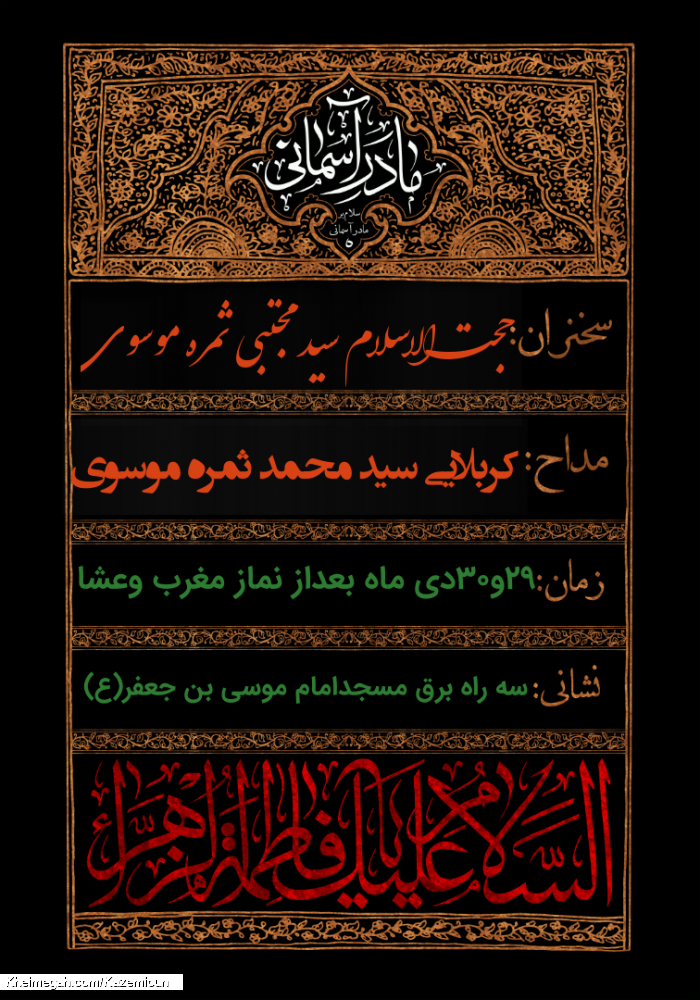 مادر آسمانی
سلام بر
مادر آسمانی
سخنران: حجت الاسلام سید مجتبی ثمره موسوی
مداح: کربلایی سید محمد ثمره موسوی
زمان: ۲۹و۳۰دی ماه بعداز نماز مغرب وعشا
نشانی: سه راه برق مسجدامام موسی بن جعفر(ع)
السلام علیک یا فاطمة الزهراء
Kheimegah.com/Kazemioun